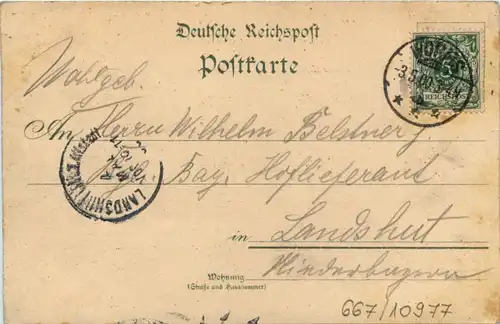 Deutsche Reichspost
Postkarte
WORMS
5
REICHSPOST
Wohlgeb.
An Herrn Wilhelm
Kgl. Bay. Hoflieferant
LANDSHUT
in Landshut
Niederbayern
Wohnung
(Straße und Hausnummer)
667/10977